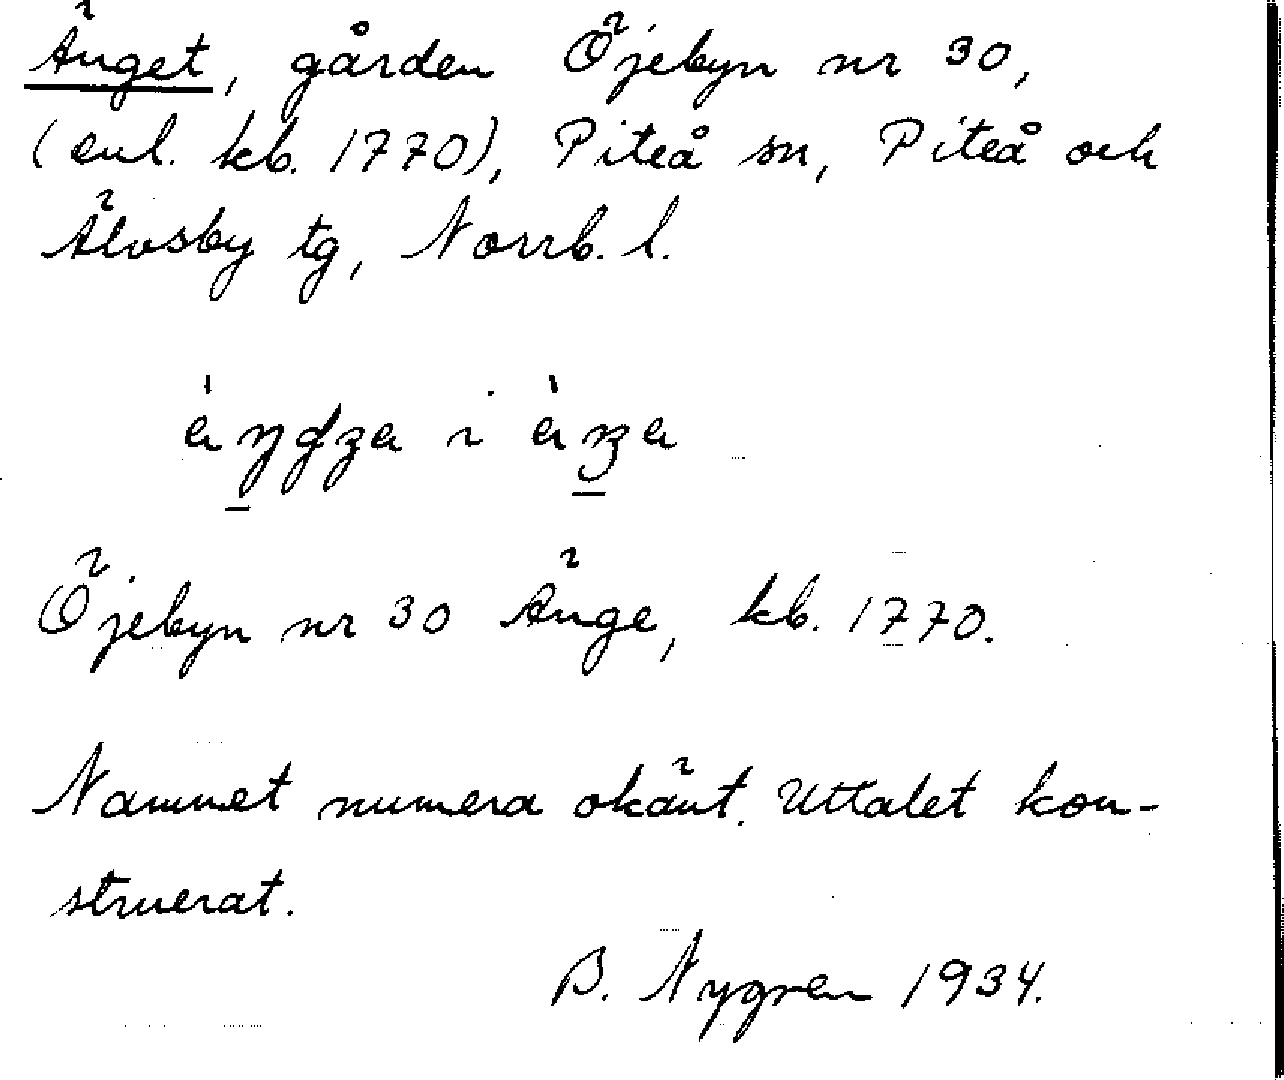 Änget, gården Öjebyn nr 30,
(enl. kb. 1770), Piteå sn, Piteå och
Älvsby tg, Norrb. l.
Öjebyn nr 30 Änge, kb. 1770.
Namnet numera okänt. Uttalet kon-
struerat.
B. Nygren 1934.